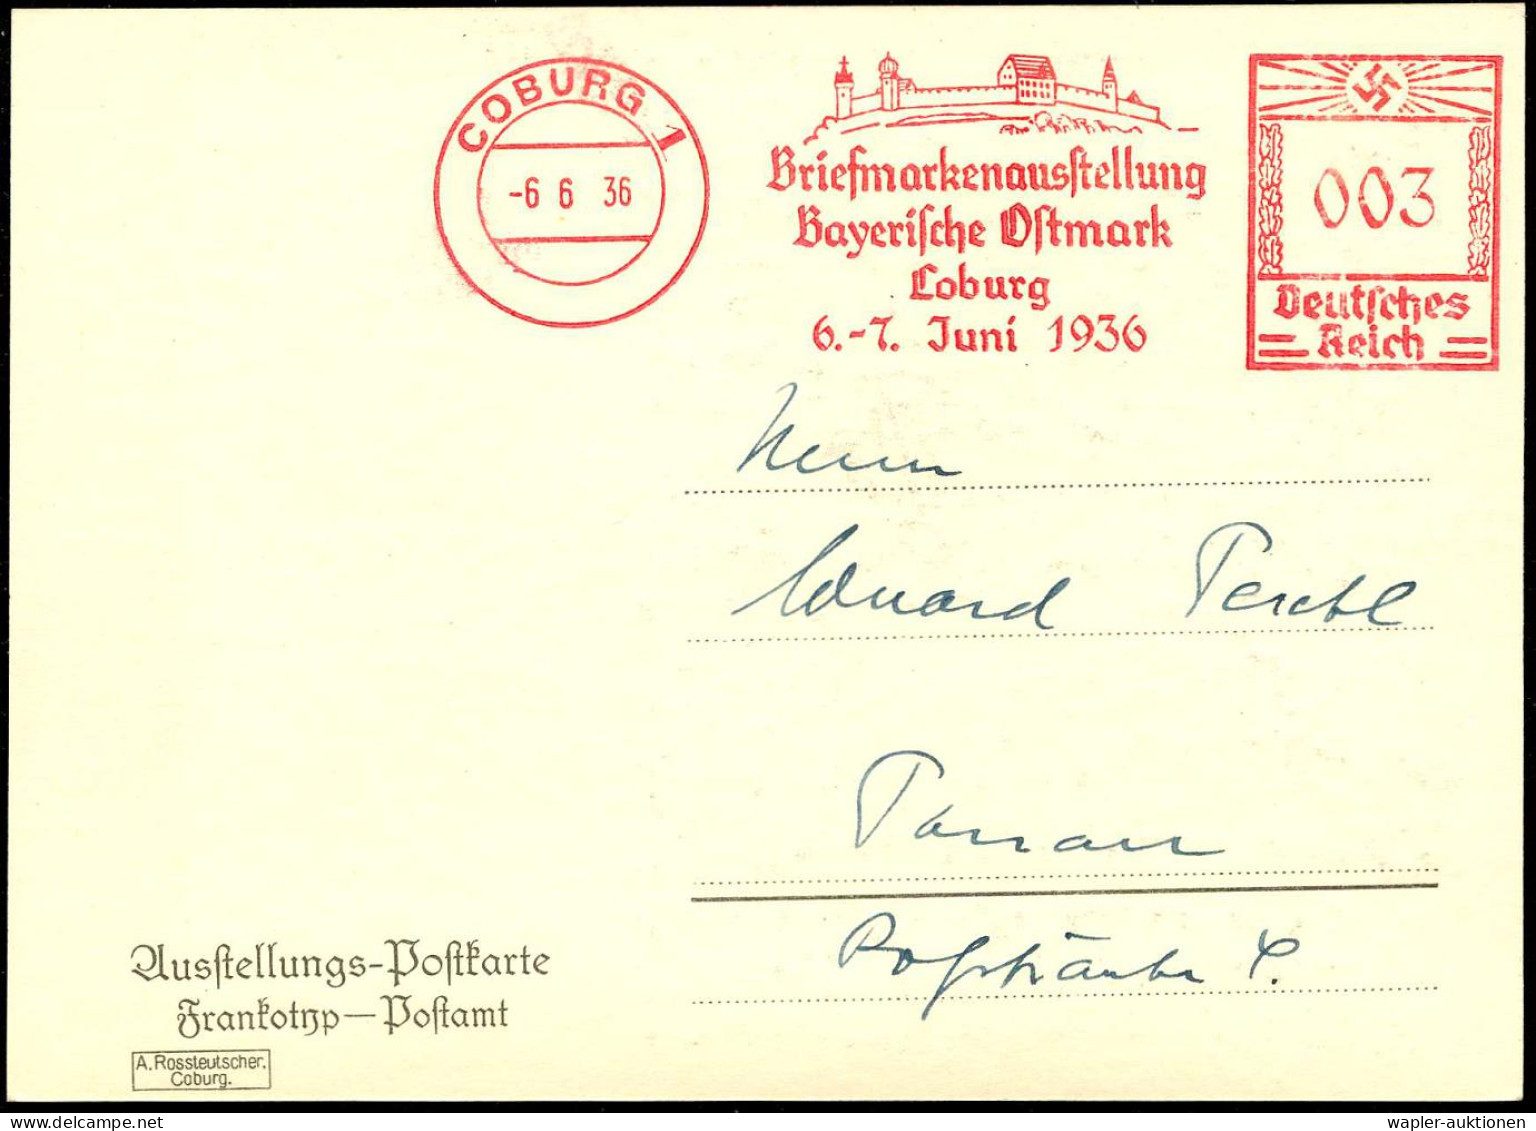 COBURG 1
-6 6 36
Briefmarkenausstellung
Bayerische Ostmark
Coburg
6.-7. Juni 1936
003
Deutsches
Reich
Herrn
Eduard Perchl
Passau
Ausstellungs-Postkarte
Frankotyp—Postamt
A. Rossteutscher.
Coburg.
wapler-auktionen